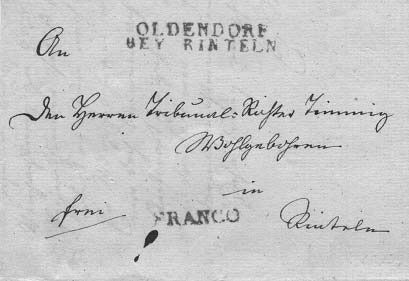 OLDENDORF
BEY RINTELN
An
Den Herren Tribunal-Richter Timmig
Wohlgebohren
in
frei FRANCO Rinteln